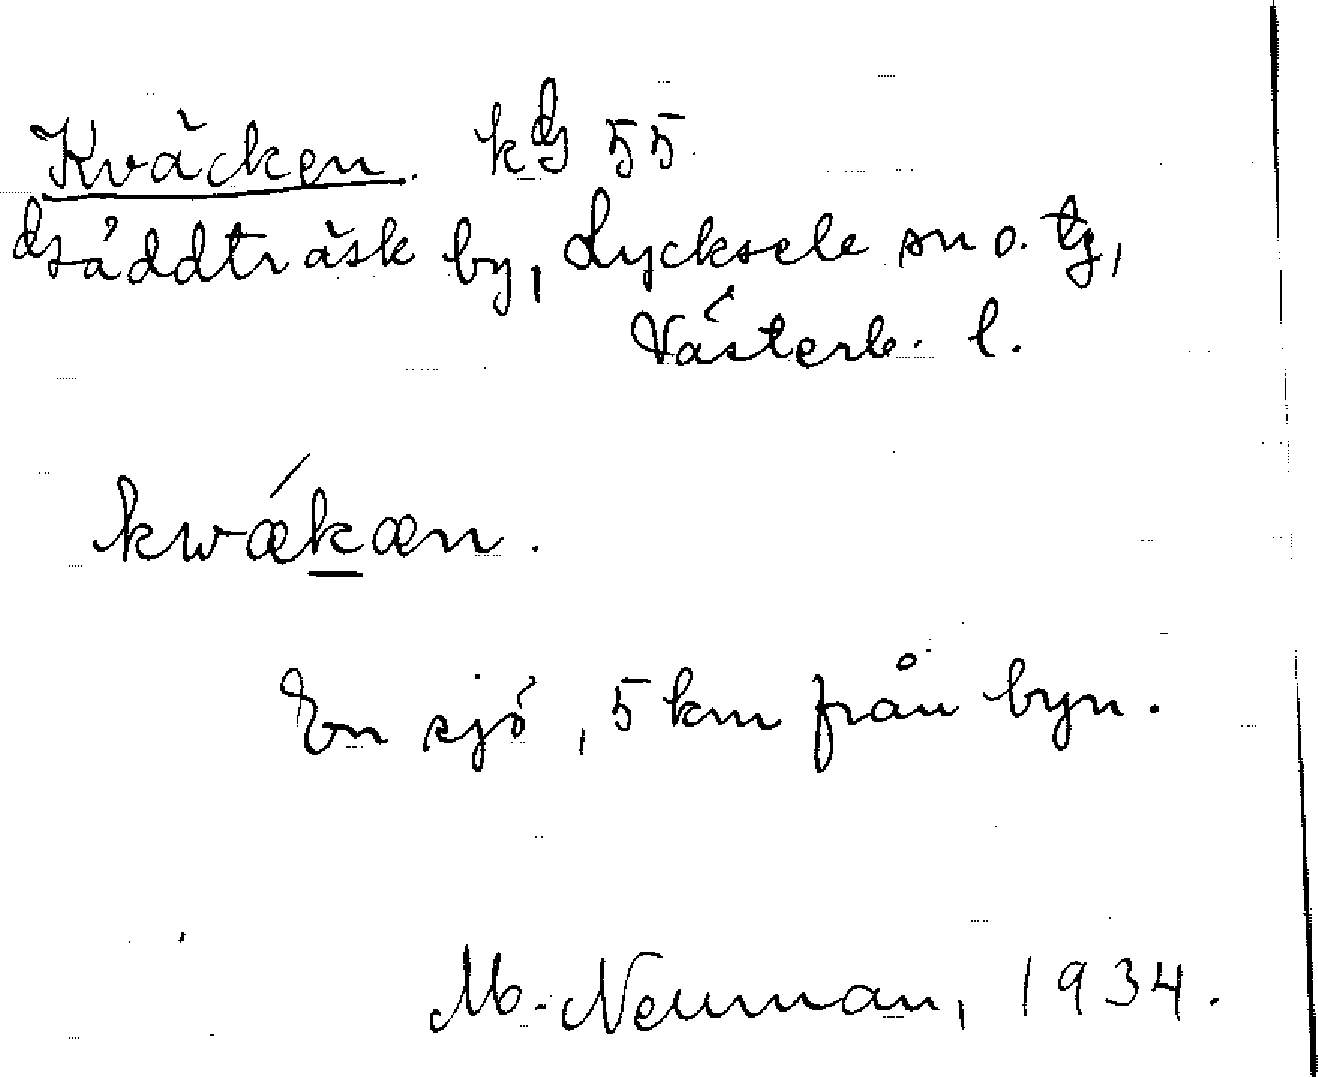 Kväcken. kG 55
Gäddträsk by, Lycksele sn o. tg,
Västerb. l.
kwǽkæn.
En sjö, 5 km från byn.
M. Neuman, 1934.